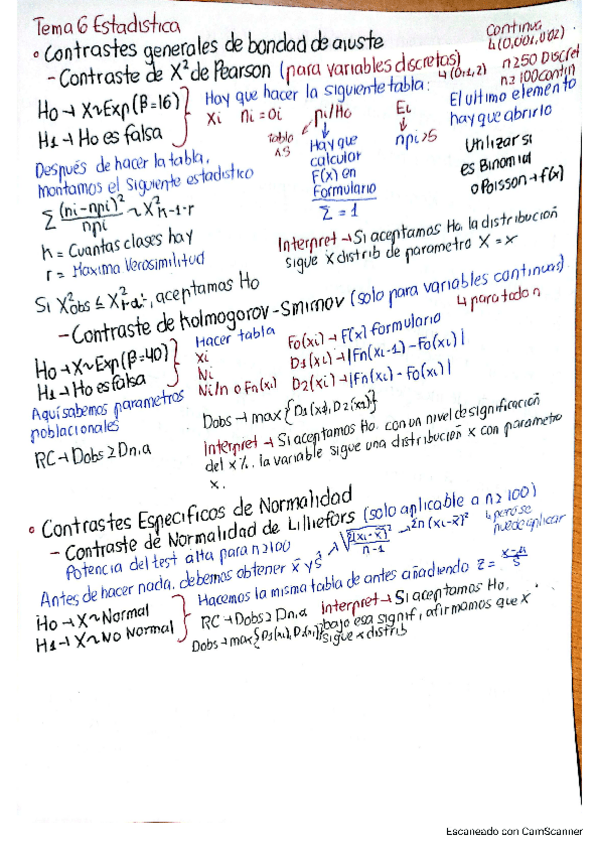 Tema 6 Estadística
• Contrastes generales de bondad de ajuste
Continua
↳ (0,001, 0,02)
- Contraste de X² de Pearson (para variables discretas)
↳ (0,1,2)
n≥50 Discret
n≥100 contin
Ho → X~Exp(β=16)
H1 → Ho es falsa
Hay que hacer la siguiente tabla:
Xi ni = Oi pi/Ho Ei
tabla
Hay que
calcular
F(x) en
Formulario
Σ = 1
npi>5
El ultimo elemento
hay que abrirlo
Utilizar si
es Binomial
o Poisson → f(x)
Después de hacer la tabla,
montamos el siguiente estadístico
Σ (ni-npi)²/npi ~ X²k-1-r
k = Cuantas clases hay
r = Maxima Verosimilitud
Interpret → Si aceptamos Ho, la distribución
sigue x distrib de parametro X = x
aceptamos Ho
- Contraste de Kolmogorov-Smirnov (solo para variables continuas)
↳ para todo n
Ho → X~Exp(β=40)
H1 → Ho es falsa
Hacer tabla
Xi
Ni
Ni/n o Fn(xi)
Fo(xi) → F(x) formulario
D1(xi) → |Fn(xi-1) - Fo(xi)|
D2(xi) → |Fn(xi) - Fo(xi)|
Aquí sabemos parametros
poblacionales
Dobs → max{D1(xi), D2(xi)}
RC → Dobs ≥ Dn,α
Interpret → Si aceptamos Ho, con un nivel de significación
del x%, la variable sigue una distribución x con parametro
x.
• Contrastes Especificos de Normalidad
- Contraste de Normalidad de Lilliefors (solo aplicable a n≥100)
↳ pero se
puede aplicar
Potencia del test alta para n≥100
Antes de hacer nada, debemos obtener x̄ y ŝ
Ho → X~Normal
H1 → X~No Normal
Hacemos la misma tabla de antes añadiendo
RC → Dobs ≥ Dn,α
Dobs → max{D1(xi), D2(xi)}
Interpret → Si aceptamos Ho,
bajo esa signif, afirmamos que X
sigue x distrib
Escaneado con CamScanner